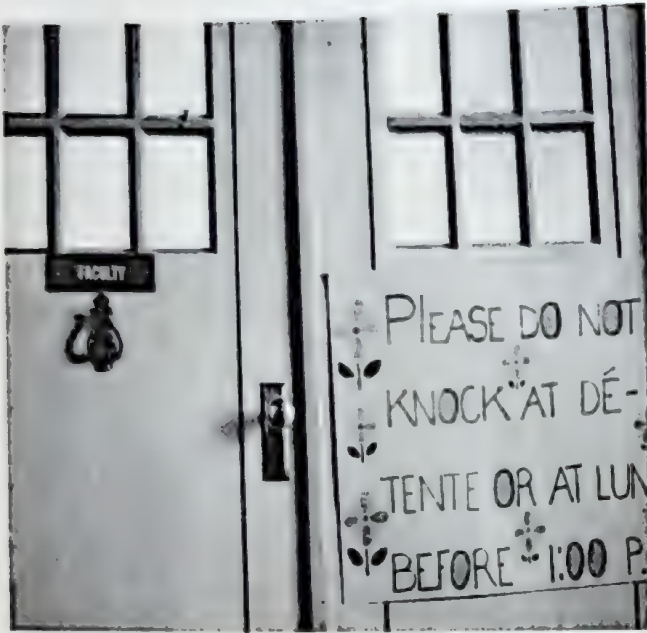 FACULTY
PLEASE DO NOT
KNOCK AT DÉ-
TENTE OR AT LUN
BEFORE 1:00 P.